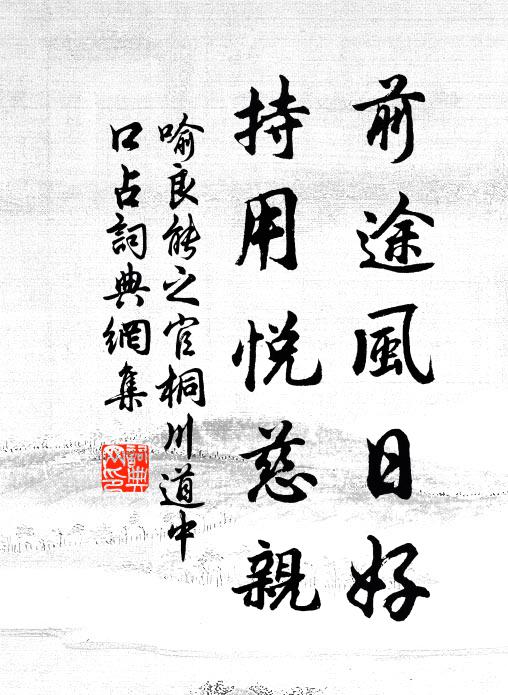 前途風日好
持用悦慈親
喻良能之官桐川道中
口占詞典網集
詞典
网印